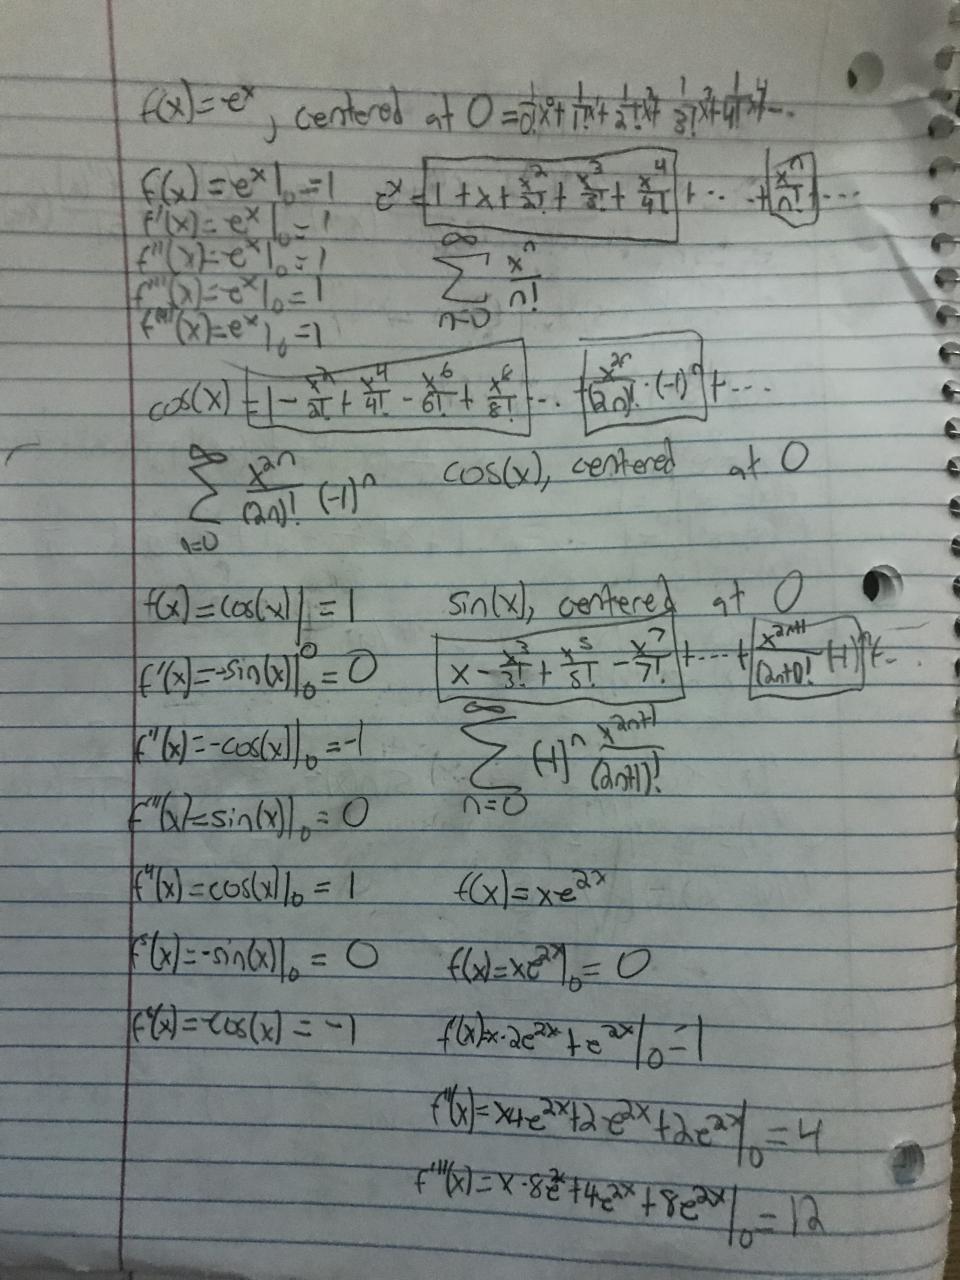 f(x) = e^x, centered at 0 = 1/0! x^0 + 1/1! x^1 + 1/2! x^2 + 1/3! x^3 + 1/4! x^4 + ...
f(x) = e^x |_0 = 1
e^x = 1 + x + x^2/2! + x^3/3! + x^4/4! + ... + x^n/n! + ...
f'(x) = e^x |_0 = 1
f''(x) = e^x |_0 = 1
∞ Σ n=0 x^n/n!
f'''(x) = e^x |_0 = 1
f''''(x) = e^x |_0 = 1
cos(x) = 1 - x^2/2! + x^4/4! - x^6/6! + x^8/8! ... + x^2n/(2n)! · (-1)^n + ...
∞ Σ n=0 x^2n/(2n)! (-1)^n
cos(x), centered at 0
f(x) = cos(x) |_0 = 1
f'(x) = -sin(x) |_0 = 0
f''(x) = -cos(x) |_0 = -1
f'''(x) = sin(x) |_0 = 0
f^4(x) = cos(x) |_0 = 1
f^5(x) = -sin(x) |_0 = 0
f^6(x) = -cos(x) = -1
sin(x), centered at 0
x - x^3/3! + x^5/5! - x^7/7! + ... + x^2n+1/(2n+1)! (-1)^n + ...
∞ Σ n=0 (-1)^n x^2n+1/(2n+1)!
f(x) = xe^2x
f(x) = xe^2x |_0 = 0
f'(x) = x·2e^2x + e^2x |_0 = 1
f''(x) = x4e^2x + 2e^2x + 2e^2x |_0 = 4
f'''(x) = x·8e^2x + 4e^2x + 8e^2x |_0 = 12